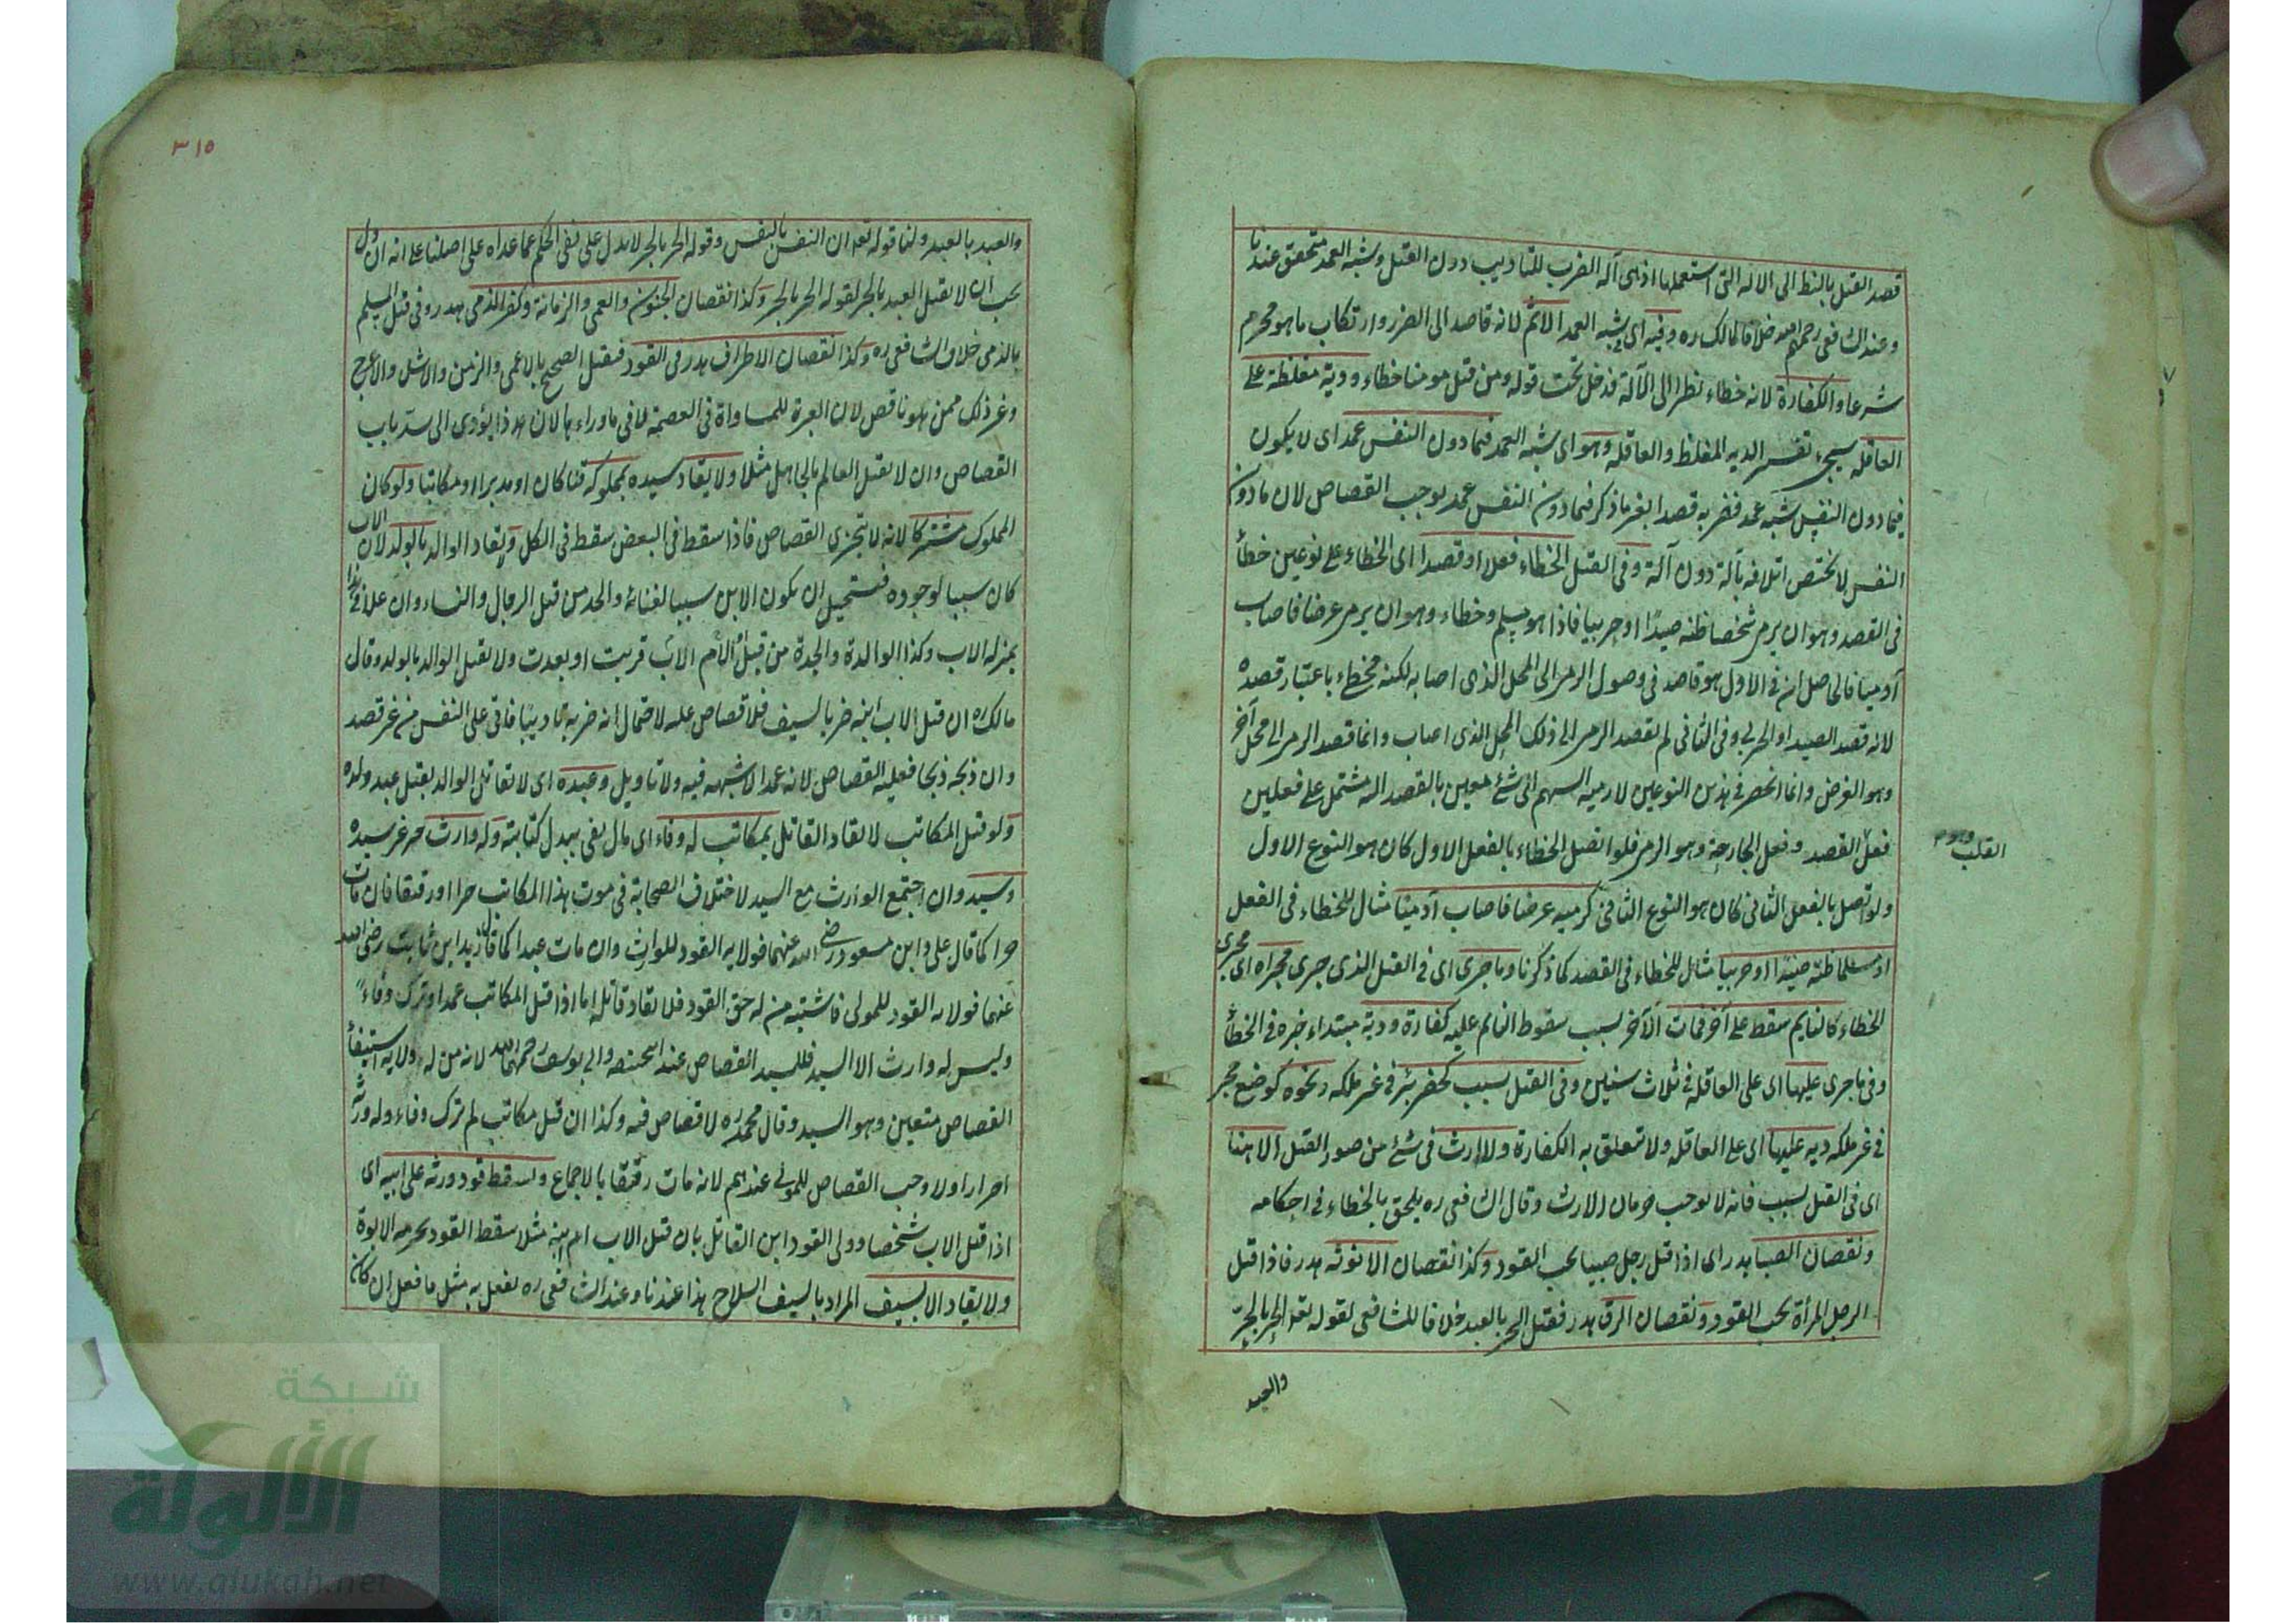 قصد القتل بالنظر الى الالة التى استعملها اذ هى آلة الضرب للتاديب دون القتل وشبه العمد متحقق عندنا
وعند الشافعى رحمه الله خلافا لمالك ره وفيه اى فى شبه العمد الاثم لانه قاصد الى الضرر وارتكاب ما هو محرم
شرعا والكفارة لانه خطاء نظرا الى الآلة فدخل تحت قوله ومن قتل مومنا خطاء ودية مغلظة على
العاقله سيجىء تفسير الدية المغلظ والعاقله وهو اى شبه العمد فيما دون النفس عمد اى لا يكون
فيما دون النفس شبه عمد فضربه قصدا بغير ما ذكر فيما دون النفس عمد يوجب القصاص لان ما دون
النفس لا يختص اتلافه بآلة دون آلة وفى القتل الخطاء فعلا او قصدا اى الخطاء على نوعين خطأ
فى القصد وهو ان يرمى شخصا ظنه صيدًا او حربيا فاذا هو مسلم وخطاء وهو ان يرمى غرضا فاصاب
آدميا فالحاصل ان فى الاول هو قاصد فى وصول الرمى الى المحل الذى اصابه لكنه مخطىء باعتبار قصده
لانه قصد الصيد او الحربى وفى الثانى لم يقصد الرمى الى ذلك المحل الذى اصاب وانما قصد الرمى الى محل آخر
وهو الغرض وانما انحصر فى هذين النوعين لا رمية السهم الى شئ معين بالقصد اليه مشتمل على فعلين
فعل القصد وفعل الجارحة وهو الرمى فلو اتصل الخطاء بالفعل الاول كان هو النوع الاول
القلب وهو
ولو اتصل بالفعل الثانى كان هو النوع الثانى كرميه غرضا فاصاب آدميا مثال للخطاء فى الفعل
او مسلما ظنه صيدا او حربيا مثال للخطاء فى القصد كما ذكرنا وما جرى اى فى القتل الذى جرى مجراه اى مجرى
الخطاء كالنايم سقط على آخر فمات الآخر بسبب سقوط النايم عليه كفارة ودية مبتداء خبره فى الخطأ
وفى ما جرى عليها اى على العاقلة فى ثلاث سنين وفى القتل بسبب كحفر بئر فى غير ملكه ونحوه كوضع حجر
فى غير ملكه دية عليها اى على العاقله ولا تتعلق به الكفارة ولا ارث فى شئ من صور القتل الا هنا
اى فى القتل بسبب فانه لا يوجب حرمان الارث وقال الشافعى ره يلحق بالخطاء فى احكامه
ونقصان الصبا هدر اى اذا قتل رجل صبيا يجب القود وكذا نقصان الانوثه هدر فاذا قتل
الرجل المرأة يجب القود ونقصان الرق هدر فيقتل الحر بالعبد خلافا للشافعى لقوله تعه الحر بالحر
والعبد
٣١٥
والعبد بالعبد ولنا قوله تعه ان النفس بالنفس وقوله الحر بالحر لا يدل على نفى الحكم عما عداه على اصلنا على انه ان دل
يجب ان لا يقتل العبد بالحر لقوله الحر بالحر وكذا نقصان الجنون والعمى والزمانة وكفر الذمى هدر وفى قتل المسلم
بالذمى خلاف الشافعى ره وكذا نقصان الاطراف هدر فى القود فيقتل الصحيح بالاعمى والزمن والاشل والاعرج
وغير ذلك ممن هو ناقص لان العبرة للمساواة فى العصمة لا فى ما وراءها لان هذا يؤدى الى سد باب
القصاص وان لا يقتل العالم بالجاهل مثلا ولا يقاد سيده بمملوكه قنا كان او مدبرا او مكاتبا ولو كان
المملوك مشتركا لانه لا يتجزى القصاص فاذا سقط فى البعض سقط فى الكل ولا يقاد الوالد بالولد لان الاب
كان سببا لوجوده فيستحيل ان يكون الابن سببا لفنائه والجد من قبل الرجال والنساء وان علا فى هذا
بمنزله الاب وكذا الوالدة والجدة من قبل الام الاب قربت او بعدت ولا يقتل الوالد بالولد وقال
مالك ره ان قتل الاب ابنه ضربا بالسيف فلا قصاص عليه لاحتمال انه ضربه تاديبا فاتى على النفس من غير قصد
وان ذبحه ذبحا فعليه القصاص لانه عمد لا شبهه فيه ولا تاويل وعبده اى لا يقاتل الوالد بقتل عبد ولده
ولو قتل المكاتب لا يقاد القاتل بمكاتب له وفاء اى مال يفى ببدل كتابته وله وارث حر غير سيده
وسيد وان اجتمع الوارث مع السيد لاختلاف الصحابة فى موت هذا المكاتب حرا او رقيقا فان مات
حرا كما قال على وابن مسعود رضى الله عنهما فولاية القود للوارث وان مات عبدا كما قال زيد ابن ثابت رضى الله
عنهما فولاية القود للمولى فاشتبه من له حق القود فلا يقاد قاتله اما اذا قتل المكاتب عمدا وترك وفاءً
وليس له وارث الا السيد فللسيد القصاص عند ابيحنيفه وابى يوسف رحمهما الله لانه من له ولاية استيفأ
القصاص متعين وهو السيد وقال محمد ره لا قصاص فيه وكذا ان قتل مكاتب لم ترك وفاء وله ورثة
احرار اولا وجب القصاص للمولى عندهم لانه مات رقيقا بالاجماع ويسقط قود ورثه على ابيه اى
اذا قتل الاب شخصا وولى القود ابن القاتل بان قتل الاب ام ابنه مثلا سقط القود بحرمه الابوة
ولا يقاد الا بسيف المراد بالسيف السلاح هذا عندنا وعند الشافعى ره يفعل به مثل ما فعل ان كان
شبكة
الألوكة
www.alukah.net